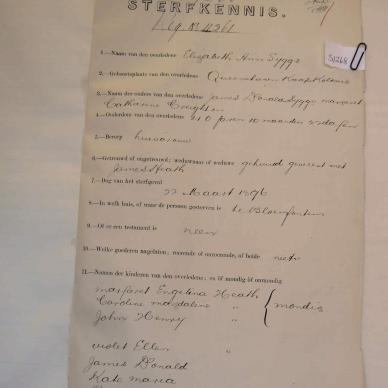 STERFKENNIS.
Reg. No 11261
S1268
1.—Naam van den overledene Elizabeth Ann Syggs
2.—Geboorteplaats van den overledene Queenstown Kaap Kolonie
3.—Namen der ouders van den overledene James Donald Syggs Margaret
Catharine Creighton
4.—Ouderdom van den overledene 40 jaren 10 maanden 22 dagen
5.—Beroep huisvrouw
6.—Getrouwd of ongetrouwd; weduwnaar of weduwe gehuwd geweest met
James Heath
7.—Dag van het sterfgeval
22 Maart 1896
8.—In welk huis, of waar de persoon gestorven is te Bloemfontein
9.—Of er een testament is neen
10.—Welke goederen nagelaten; roerende of onroerende, of beide niets
11.—Namen der kinderen van den overledene; en of mondig of onmondig
Margaret Engelina Heath
Caroline Magdaline "
John Henry "
mondig
Violet Ellen "
James Donald
Kate Maria